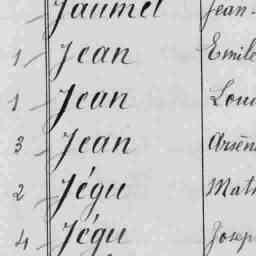 Jaumel Jean-
1 Jean Emile
1 Jean Loui
3 Jean Arsène
2 Jégu Math
4 Jégu Josep